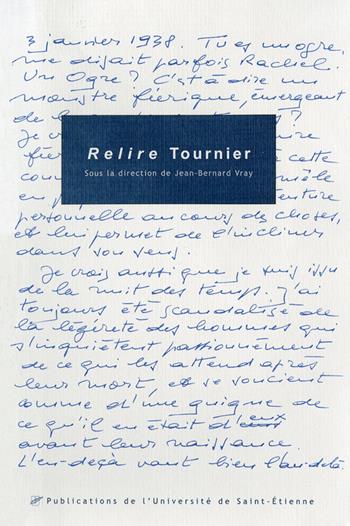 3 janvier 1938. Tu es un ogre,
me disait parfois Rachel.
Un Ogre? C'est à dire un
monstre féerique, émergeant
de la
Je
Relire Tournier
Sous la direction de Jean-Bernard Vray
féer cette
con mêle
en p enture
personnelle au cours des choses,
et lui permet de l'incliner
dans son sens.
Je crois aussi que je suis issu
de la nuit des temps. J'ai
toujours été scandalisé de
la légèreté des hommes qui
s'inquiètent passionnément
de ce qui les attend après
leur mort, et se soucient
comme d'une guigne de
ce qu'il en était d'eux
avant leur naissance.
L'en-deçà vaut bien l'au-delà.
Publications de l'Université de Saint-Étienne